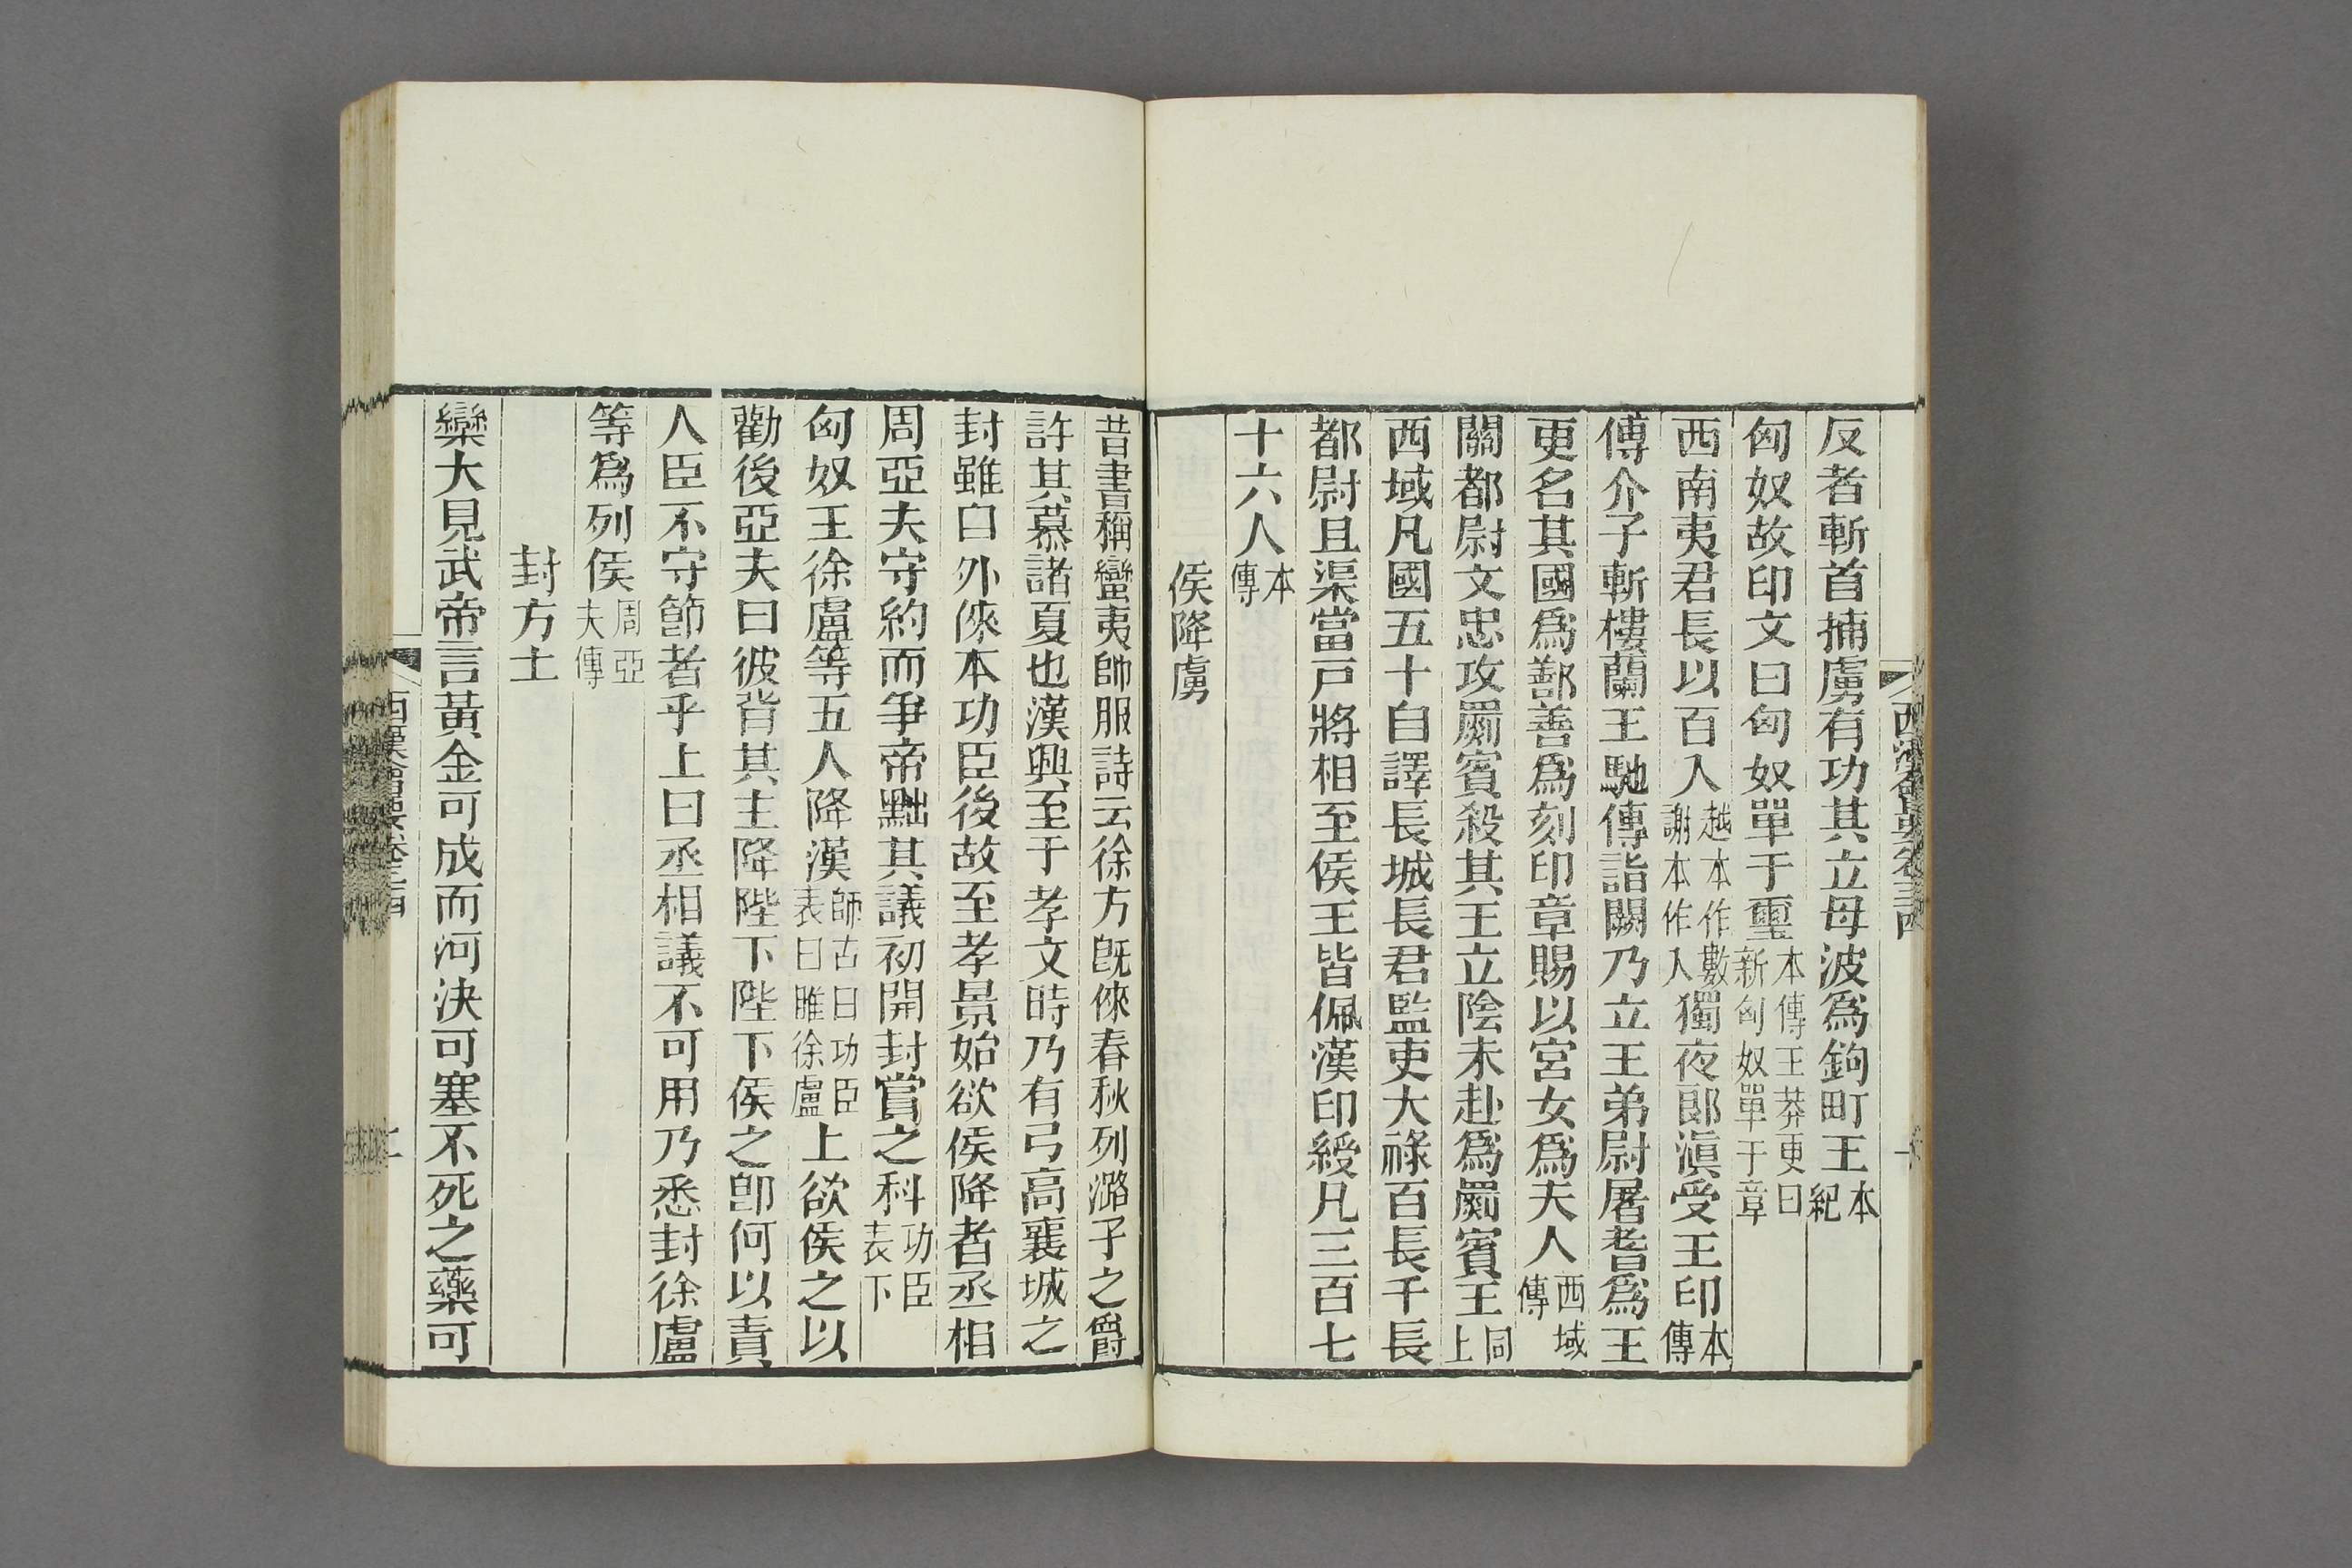 反者斬首捕虜有功其立母波爲鉤町王本紀
匈奴故印文曰匈奴單于璽本傳王莽更曰新匈奴單于章
西南夷君長以百入越本作數謝本作入獨夜郎滇受王印本傳
傅介子斬樓蘭王馳傳詣闕乃立王弟尉屠耆爲王
更名其國爲鄯善爲刻印章賜以宮女爲夫人西域傳
關都尉文忠攻罽賓殺其王立陰末赴爲罽賓王同上
西域凡國五十自譯長城長君監吏大祿百長千長
都尉且渠當戸將相至侯王皆佩漢印綬凡三百七
十六人本傳
侯降虜
昔書稱蠻夷帥服詩云徐方旣倈春秋列潞子之爵
許其慕諸夏也漢興至于孝文時乃有弓高襄城之
封雖自外倈本功臣後故至孝景始欲侯降者丞相
周亞夫守約而爭帝黜其議初開封賞之科功臣表下
匈奴王徐盧等五人降漢師古曰功臣表曰睢徐盧上欲侯之以
勸後亞夫曰彼背其主降陛下陛下侯之卽何以責
人臣不守節者乎上曰丞相議不可用乃悉封徐盧
等爲列侯周亞夫傳
封方士
欒大見武帝言黃金可成而河決可塞不死之藥可
西漢會要卷三四